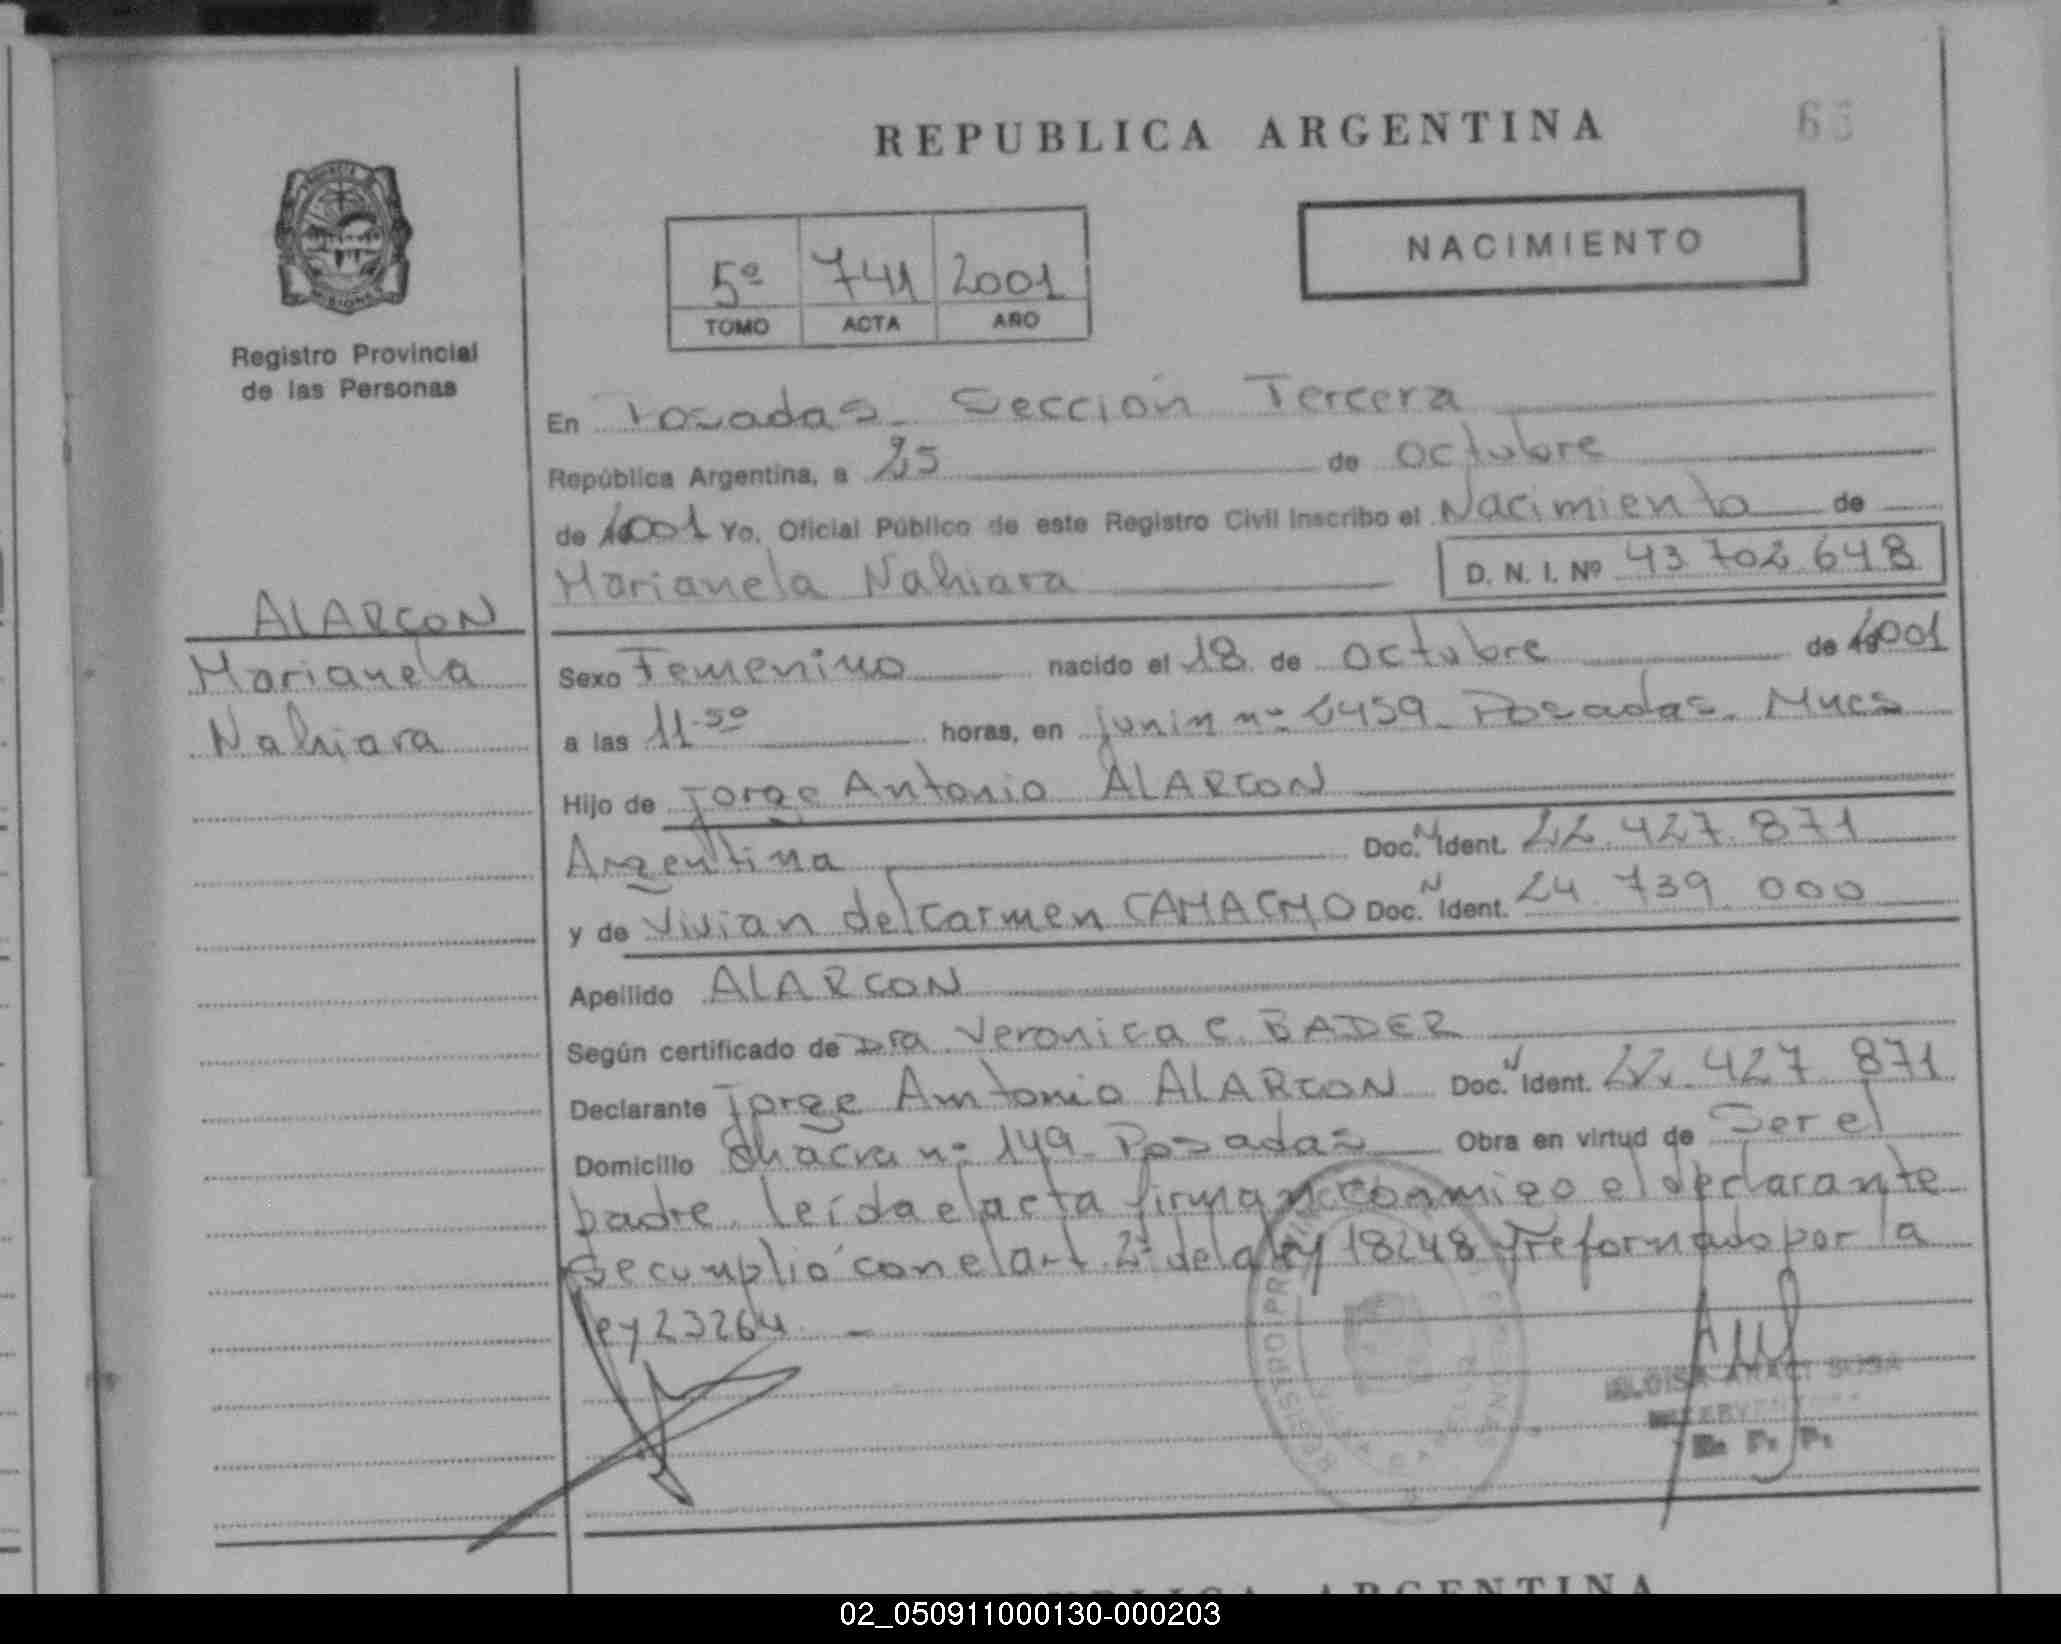 REPUBLICA ARGENTINA
NACIMIENTO
5º 741 2001
TOMO ACTA AÑO
Registro Provincial
de las Personas
En Posadas - Sección Tercera
República Argentina, a 25 de octubre
de 2001 Yo, Oficial Público de este Registro Civil Inscribo el Nacimiento de
Marianela Nahiara D. N. I. Nº 43 702 648
ALARCON
Marianela
Nahiara
Sexo Femenino nacido el 18 de octubre de 2001
a las 11-50 horas, en junin nº 2459 - Posadas - Mnes
Hijo de Jorge Antonio ALARCON
Argentina Doc. N Ident. 22.427.871
y de Vivian del Carmen CAMACHO Doc. N Ident. 24 739 000
Apellido ALARCON
Según certificado de Dra Veronica C. BADER
Declarante Jorge Antonio ALARCON Doc. N Ident. 22.427 871
Domicilio Chacra nº 149 - Posadas Obra en virtud de Ser el
padre. leída el acta firman conmigo el declarante
Se cumplió con el art 2º de la ley 18248 reformado por la
ley 23264. -
ARACI SOSA
REPUBLICA ARGENTINA
02_050911000130-000203